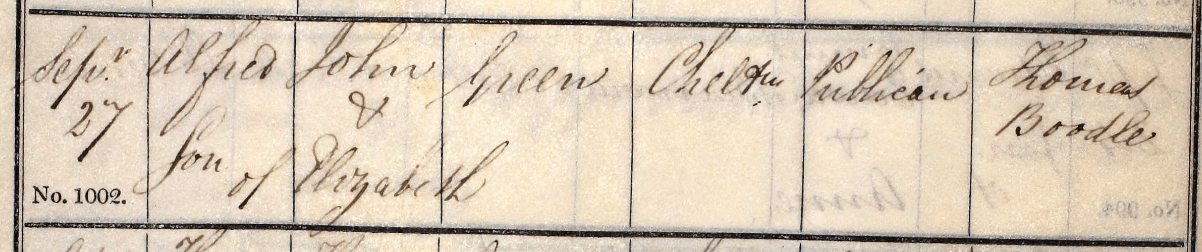 Sepr Alfred John Green Cheltm Publican Thomas
27 & Boodle
Son of Elizabeth
No. 1002.